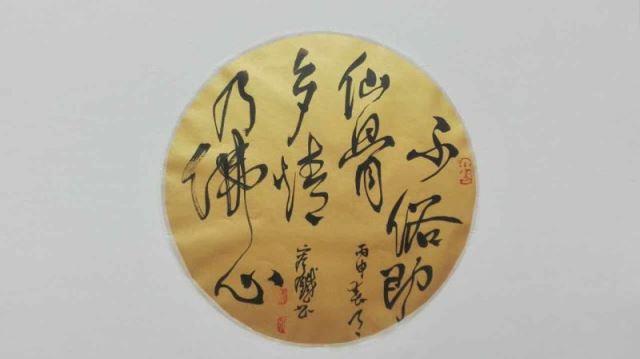 不俗即
仙骨
多情
乃佛心
丙申春月